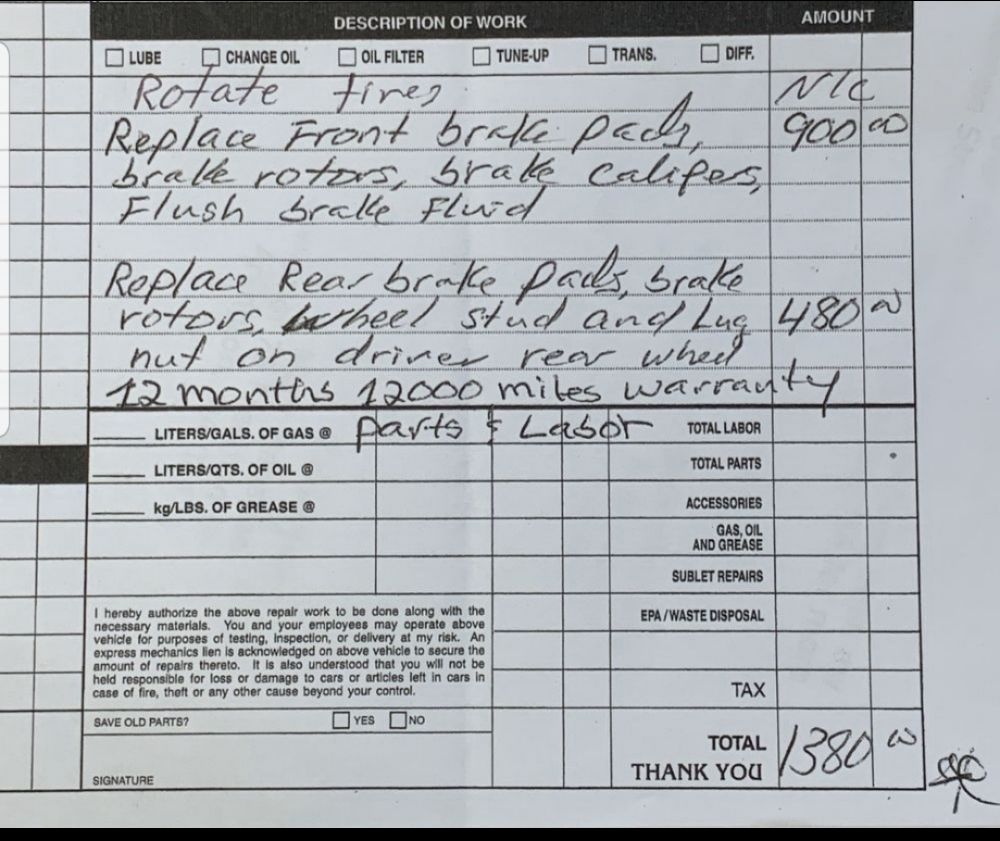 DESCRIPTION OF WORK AMOUNT
LUBE CHANGE OIL OIL FILTER TUNE-UP TRANS. DIFF.
Rotate tires N/C
Replace Front brake pads, 900 00
brake rotors, brake calipes,
Flush brake Fluid
Replace Rear brake pads, brake
rotors, wheel stud and Lug 480 00
nut on driver rear wheel
12 months 12000 miles warranty
LITERS/GALS. OF GAS @ Parts & Labor TOTAL LABOR
LITERS/QTS. OF OIL @ TOTAL PARTS
kg/LBS. OF GREASE @ ACCESSORIES
GAS, OIL
AND GREASE
SUBLET REPAIRS
I hereby authorize the above repair work to be done along with the
necessary materials. You and your employees may operate above
vehicle for purposes of testing, inspection, or delivery at my risk. An
express mechanics lien is acknowledged on above vehicle to secure the
amount of repairs thereto. It is also understood that you will not be
held responsible for loss or damage to cars or articles left in cars in
case of fire, theft or any other cause beyond your control.
EPA / WASTE DISPOSAL
TAX
SAVE OLD PARTS? YES NO
TOTAL 1380 00
THANK YOU
SIGNATURE